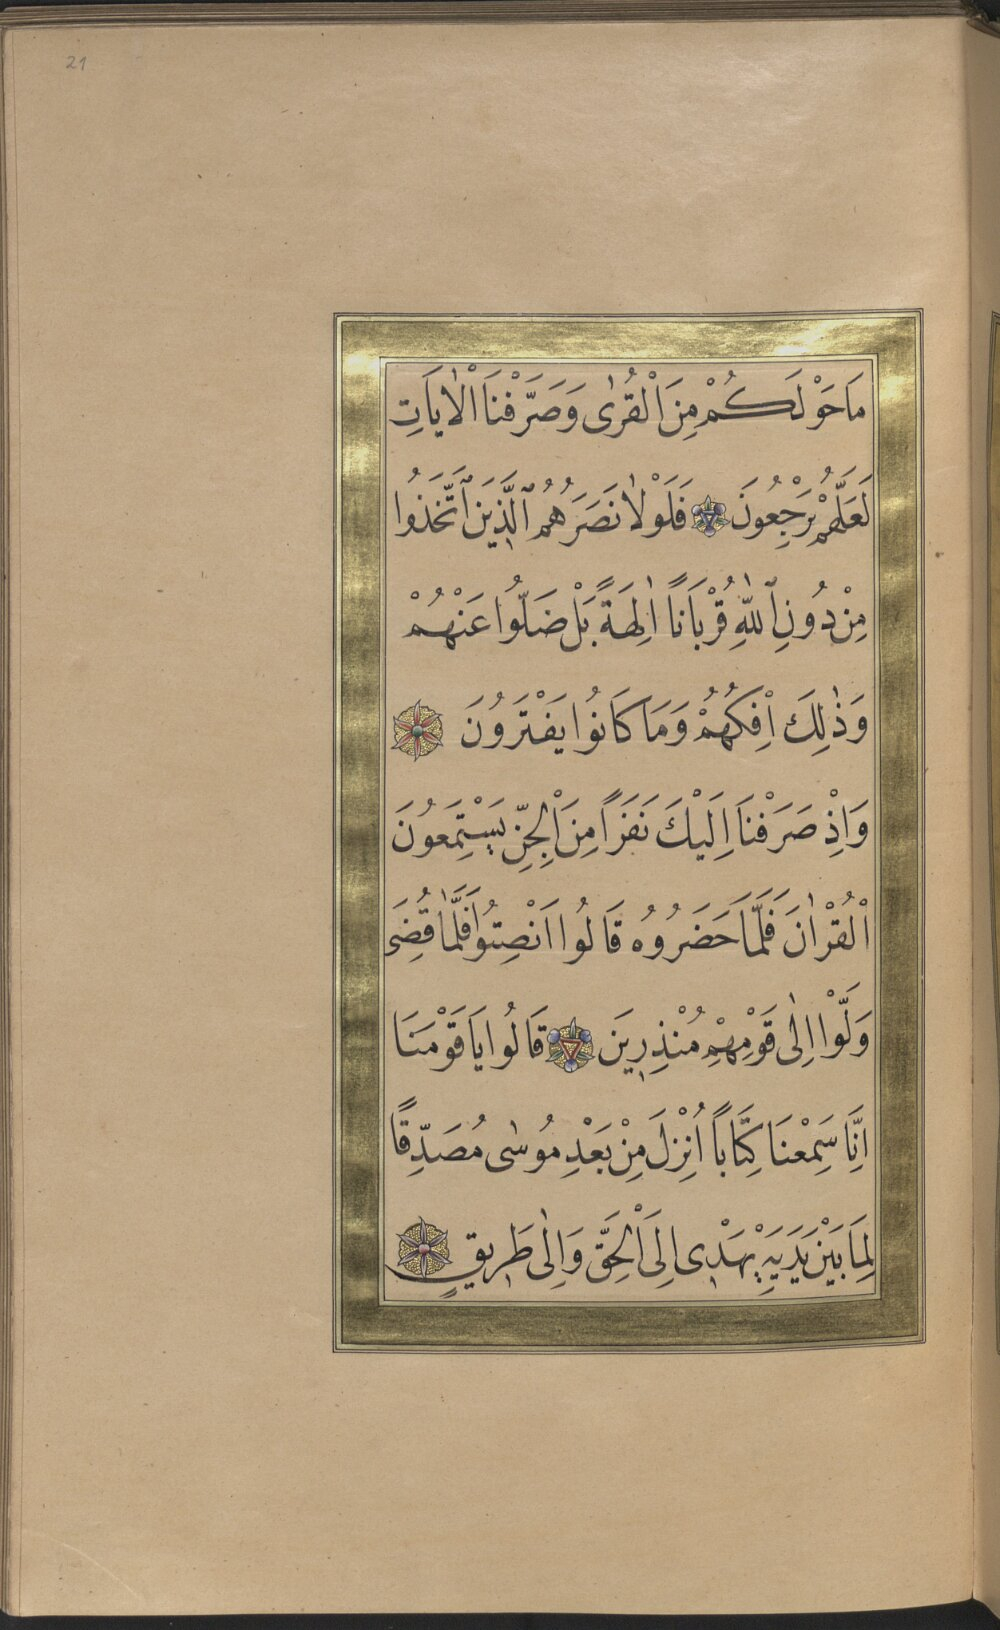 21
مَا حَوْلَكُمْ مِنَ الْقُرٰى وَصَرَّفْنَا الْاٰيَاتِ
لَعَلَّهُمْ يَرْجِعُونَ فَلَوْلَا نَصَرَهُمُ ٱلَّذِينَ ٱتَّخَذُوا
مِنْ دُونِ ٱللّٰهِ قُرْبَانًا اٰلِهَةً بَلْ ضَلُّوا عَنْهُمْ
وَذٰلِكَ اِفْكُهُمْ وَمَا كَانُوا يَفْتَرُونَ
وَاِذْ صَرَفْنَا اِلَيْكَ نَفَرًا مِنَ الْجِنِّ يَسْتَمِعُونَ
الْقُرْاٰنَ فَلَمَّا حَضَرُوهُ قَالُوا اَنْصِتُوا فَلَمَّا قُضِىَ
وَلَّوْا اِلٰى قَوْمِهِمْ مُنْذِرِينَ قَالُوا يَا قَوْمَنَا
اِنَّا سَمِعْنَا كِتَابًا اُنْزِلَ مِنْ بَعْدِ مُوسٰى مُصَدِّقًا
لِمَا بَيْنَ يَدَيْهِ يَهْدِى اِلَى الْحَقِّ وَاِلٰى طَرِيقٍ